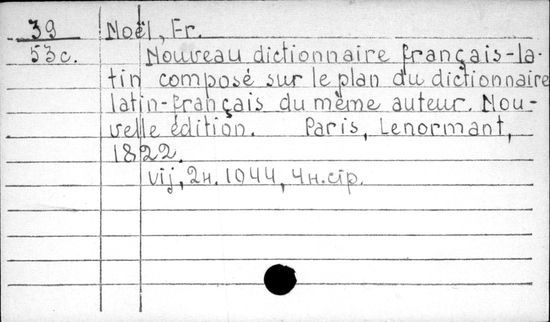 39 Noël, Fr.
53c. Nouveau dictionnaire français-la-
tin composé sur le plan du dictionnaire
latin-français du même auteur. Nou-
velle édition. Paris, Lenormant,
1822.
vij, 2н. 1044, 4н.стр.